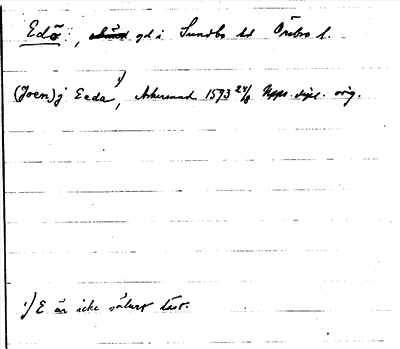 Edö, gd i Sundbo hd Örebro l.
(Joen) j Eeda 1), Askersund 1593 24/8 Upps. dipl. orig.
1) E är icke säkert läst.